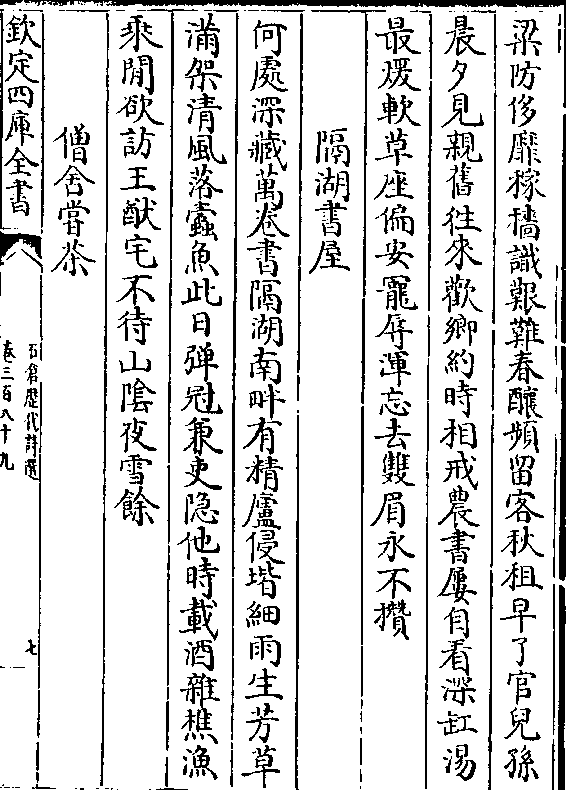 梁防侈靡稼穡識艱難春釀頻留客秋租早了官兒孫
晨夕見親舊徃來歡鄉約時相戒農書屢自看深缸湯
最煖軟草座偏安寵辱渾忘去雙眉永不攢
隔湖書屋
何處深藏萬卷書隔湖南畔有精廬侵堦細雨生芳草
滿架清風落蠧魚此日弹冠兼吏隐他時載酒雜樵漁
乘閒欲訪王猷宅不待山陰夜雪餘
僧舍嘗茶
欽定四庫全書
石倉歷代詩選
卷三百八十九
七